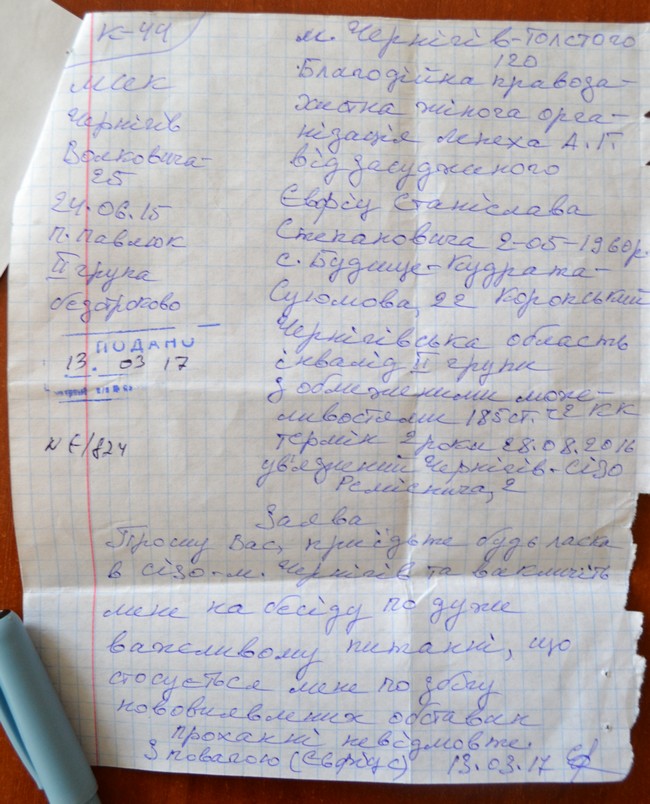 К-44
МСЕК
Чернігів
Волковича-
25
24.06.15
п. Павлюк
ІІ група
безстроково
ПОДАНО
13. 03 17
N Є/824
м. Чернігів-Толстого
120
Благодійна правоза-
хистна жіноча орга-
нізація Лепеха А.П
від засудженого
Євфіц Станіслава
Степановича 2-05-1960р.
с. Будище-Кудрата-
Сугомова, 22 Коропський
Чернігівська область
інвалід ІІ групи
з обмеженими може-
ливостями 185ст. ч2 КК
термін 2 роки 28.08.2016
ув'язнений Чернігів-СІЗО
2
Заява
Прошу Вас, приєдьте будь ласка
в СІЗО-м. Чернігів та викличіть
мене на бесіду по дуже
важеливому питанні, що
стосується мене по збігу
нововиявлених обставин
проханні невідмовте.
З повагою ( ) 13.03.17